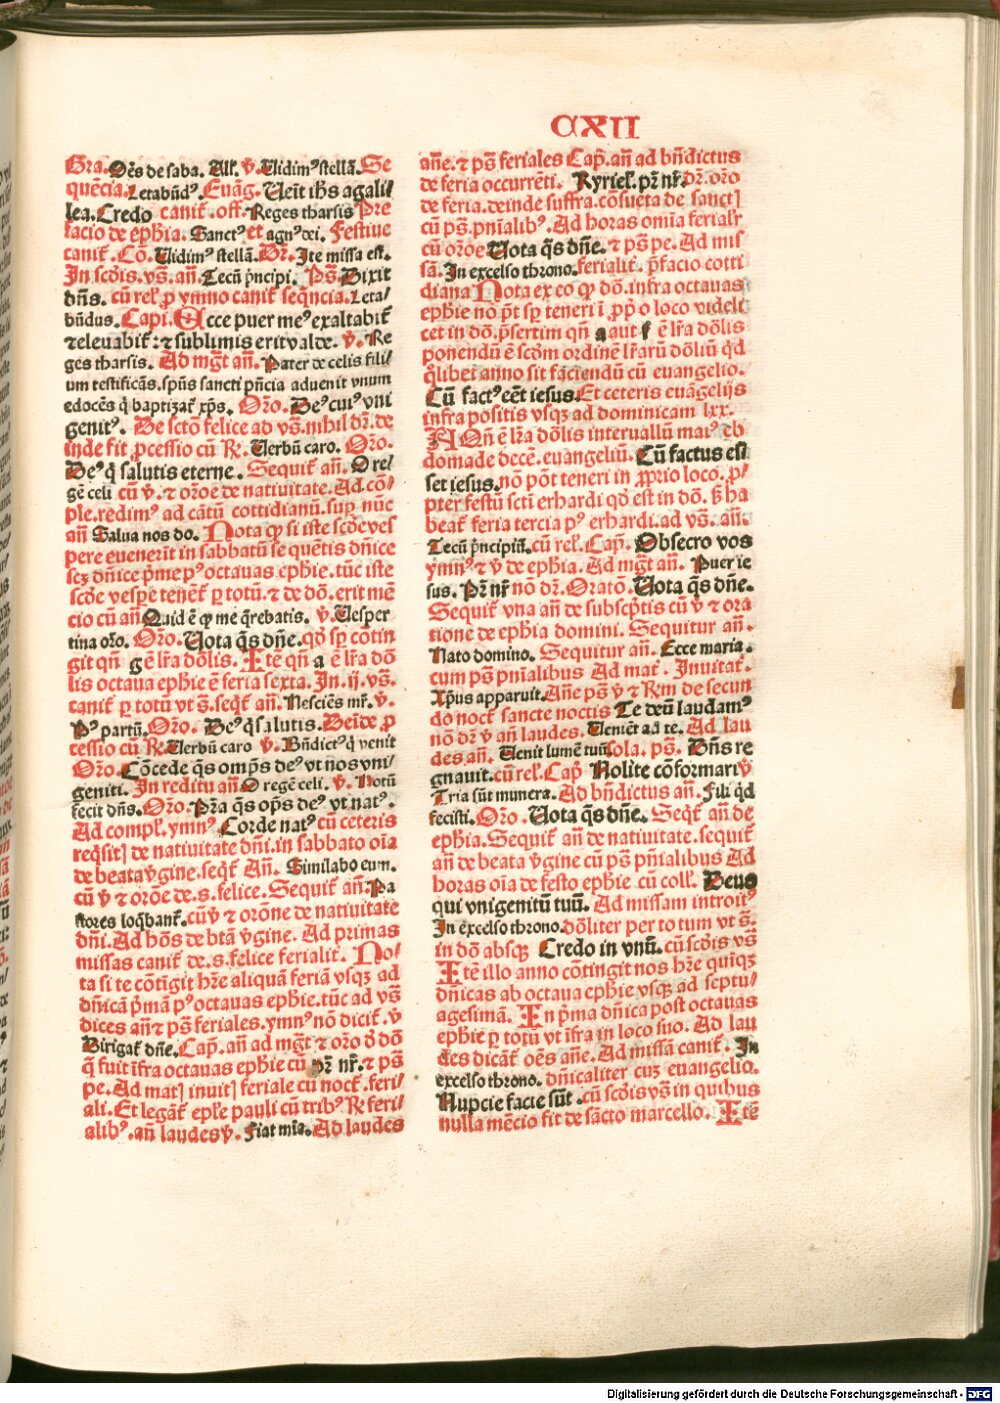 CXII
Gra. Oēs de saba. All'. v̄. Uidimꝰ stellā. Se
quēcia. Letabūdꝰ. Euāg. Uēit ihs a gali⸗
lea. Credo canit᷑. off. Reges tharsis Pre
facio de ephīa. Sanctꝰ et agnꝰ dei. Festiue
canit᷑. Cō. Uidimꝰ stellā. Br̄. Ite missa est.
In scd̄is. vs̄. an̄. Tecū p̄ncipi. Ps̄. Dixit
dn̄s. cū rel'. ꝓ ymno canit᷑ seq̄ncia. Leta⸗
būdus. Capi. Ecce puer meꝰ exaltabit᷑
⁊ eleuabit᷑: ⁊ sublimis erit valde. v̄. Re
ges tharsis. Ad mg̅t an̄. Pater de celis fili⸗
um testificās. spūs sancti p̄ncia aduenit vnum
edocēs q̄ baptizat᷑ xp̄s. Oro. Deꝰ cuiꝰ vni
genitꝰ. De scto felice ad vs̄. nihil dr̄. de
inde fit ꝓcessio cū R̄. Uerbū caro. Oro.
Deꝰ q̄ salutis eterne. Sequit᷑ an̄. O re⸗
gē celi cū v̄. ⁊ orōe de natiuitate. Ad cō⸗
ple. redimꝰ ad cātū cottidianū. sup nūc
an̄ Salua nos do. Nota qꝫ si iste scd̄e ves
pere euenerit in sabbatū sequētis dn̄ice
scꝫ dn̄ice p̄me pꝰ octauas ephīe. tūc iste
scd̄e vespe tenēt᷑ ꝑ totū. ⁊ de dō. erit mē
cio cū an̄ Quid ē qꝫ me q̄rebatis. v̄. Uesper
tina oro. Oro. Uota q̄s dn̄e. qd̄ sꝑ cōtin
git qn̄ g ē lr̄a dōlis. Itē qn̄ a ē lr̄a dō
lis octaua ephīe ē feria sexta. In. ij. vs̄.
canit᷑ ꝑ totū vt s̄. seq̄t᷑ an̄. Nesciēs mr̄. v̄.
Pꝰ partū. Oro. Deꝰ q̄ salutis. Deīde ꝓ
cessio cū R̄. Uerbū caro v̄. Bn̄dictꝰ q̄ venit
Oro. Cōcede q̄s omp̄s deꝰ vt nos vni⸗
geniti. In reditu an̄ O regē celi. v̄. Notū
fecit dn̄s. Oro. Pr̄a q̄s op̄s deꝰ vt natꝰ.
Ad compl'. ymnꝰ Corde natꝰ cū ceteris
req̄sit] de natiuitate dn̄i. in sabbato oīa
de beata v̄gine. seq̄t᷑ An̄. Similabo eum.
cū v̄ ⁊ orōe de. s. felice. Sequit᷑ an̄. Pa
stores loq̄bant᷑. cū v̄ ⁊ orōne de natiuitate
dn̄i. Ad hōs de btā v̄gine. Ad primas
missas canit᷑ de. s. felice ferialit᷑. No⸗
ta si te cōtīgit hr̄e aliquā feriā vsqꝫ ad
dn̄icā p̄mā pꝰ octauas ephīe. tūc ad vs̄
dices an̄ ⁊ ps̄ feriales. ymnꝰ nō dicit᷑. v̄
Dirigat᷑ dn̄e. Cap. an̄ ad mg̅t ⁊ oro d̄ dō
q̄ fuit īfra octauas ephīe cū pr̄ nr̄. ⁊ ps̄
pe. Ad mat] inuit] feriale cū noct᷑. feri⸗
ali. Et legāt᷑ epl'e pauli cū tribꝰ R̄ feri⸗
alibꝰ. an̄ laudes v̄. Fiat mīa. Ad laudes
an̄e. ⁊ ps̄ feriales Cap. an̄ ad bn̄dictus
de feria occurrēti. Kyriel'. pr̄ nr̄. dr̄. oro
de feria. deinde suffra. cōsueta de sanct]
cū ps̄. pn̄ialibꝰ. Ad horas omīa ferialr̄
cū orōe Uota q̄s dn̄e. ⁊ ps̄ pe. Ad mis
sā. In excelso throno. ferialit᷑. p̄facio cotti
diana Nota ex eo qꝫ dō. infra octauas
ephīe nō pt̄ sꝑ teneri ī ꝓpō loco videli
cet in dō. p̄sertim qn̄ a aut f ē lr̄a dōlis
ponendū ē scd̄m ordinē lr̄arū dōliū qd̄
q̄libet anno sit faciendū cū euangelio.
Cū factꝰ eēt iesus. Et ceteris euāgelijs
infra positis vsqꝫ ad dominicam lxx.
Qn̄ ē lr̄a dōlis interuallū maiꝰ eb
domade decē. euangeliū. Cū factus es⸗
set iesus. nō pōt teneri in ꝓprio loco. ꝓ⸗
pter festū scti erhardi qd̄ est in dō. s̄ ha
beat᷑ feria tercia pꝰ erhardi. ad vs̄. an̄.
Tecū p̄ncipiū. cū rel'. Cap. Obsecro vos
ymnꝰ ⁊ v̄ de ephīa. Ad mg̅t an̄. Puer ie
sus. Pr̄ nr̄ nō dr̄. Oratō. Uota q̄s dn̄e.
Sequit᷑ vna an̄ de subscp̄tis cū v̄ ⁊ ora
tione de ephīa domini. Sequitur an̄.
Nato domino. Sequitur an̄. Ecce maria.
cum ps̄ pnialibus Ad mat᷑. Inuitat᷑.
Xp̄us apparuit. An̄e ps̄ v̄ ⁊ R̄m de secun
do noct᷑ sancte noctis Te deū laudamꝰ
nō dr̄ v̄ an̄ laudes. Ueniēt ad te. Ad lau
des an̄. Uenit lumē tuū sola. ps̄. Dn̄s re
gnauit. cū rel'. Cap Nolite cōformari v̄
Tria sūt munera. Ad bn̄dictus an̄. Fili qd̄
fecisti. Oro. Uota q̄s dn̄e. Seq̄t᷑ an̄ de
ephīa. Sequit᷑ an̄ de natiuitate. sequit᷑
an̄ de beata v̄gine cū ps̄ pn̄ialibus Ad
horas oīa de festo ephīe cū coll'. Deus
qui vnigenitū tuū. Ad missam introitꝰ
In excelso throno. dōliter per totum vt s̄.
in dō absqꝫ Credo in vnū. cū scd̄is vs̄
Itē illo anno cōtingit nos hr̄e quīqꝫ
dn̄icas ab octaua ephīe vsqꝫ ad septu⸗
agesimā. In p̄ma dn̄ica post octauas
ephīe ꝑ totū vt īfra in loco suo. Ad lau
des dicāt᷑ oēs an̄e. Ad missā canit᷑. In
excelso throno. dn̄icaliter cuꝫ euangelio.
Nupcie facte sūt. cū scd̄is vs̄ in quibus
nulla mēcio fit de sācto marcello. Itē
Digitalisierung gefördert durch die Deutsche Forschungsgemeinschaft - DFG